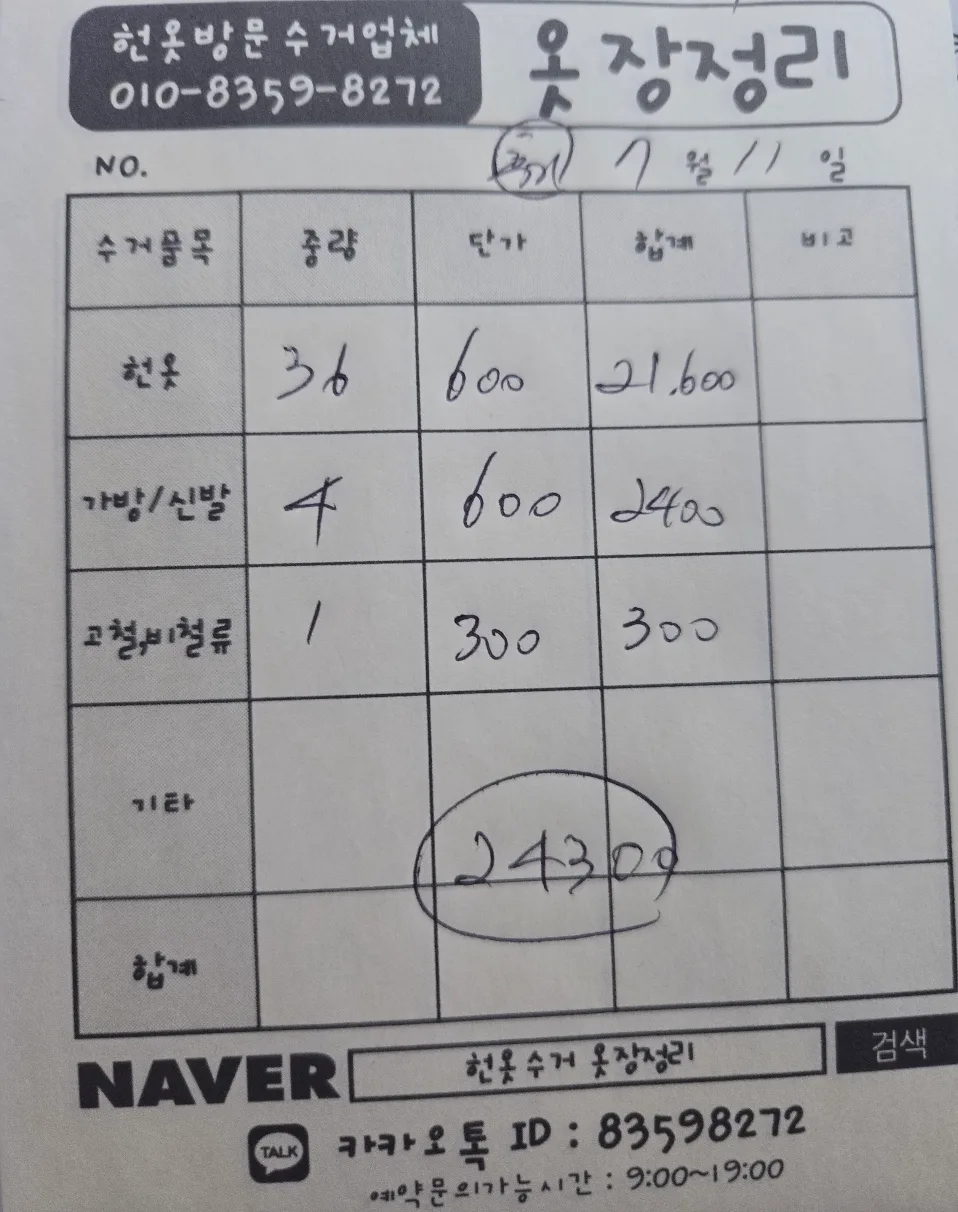 헌옷방문수거업체
010-8359-8272
옷장정리
NO.
7월 11일
수거품목 중량 단가 합계 비고
헌옷 36 600 21.600
가방/신발 4 600 2400
고철,비철류 1 300 300
기타
24300
합계
NAVER 헌옷수거 옷장정리 검색
TALK 카카오톡 ID : 83598272
예약문의가능시간 : 9:00~19:00